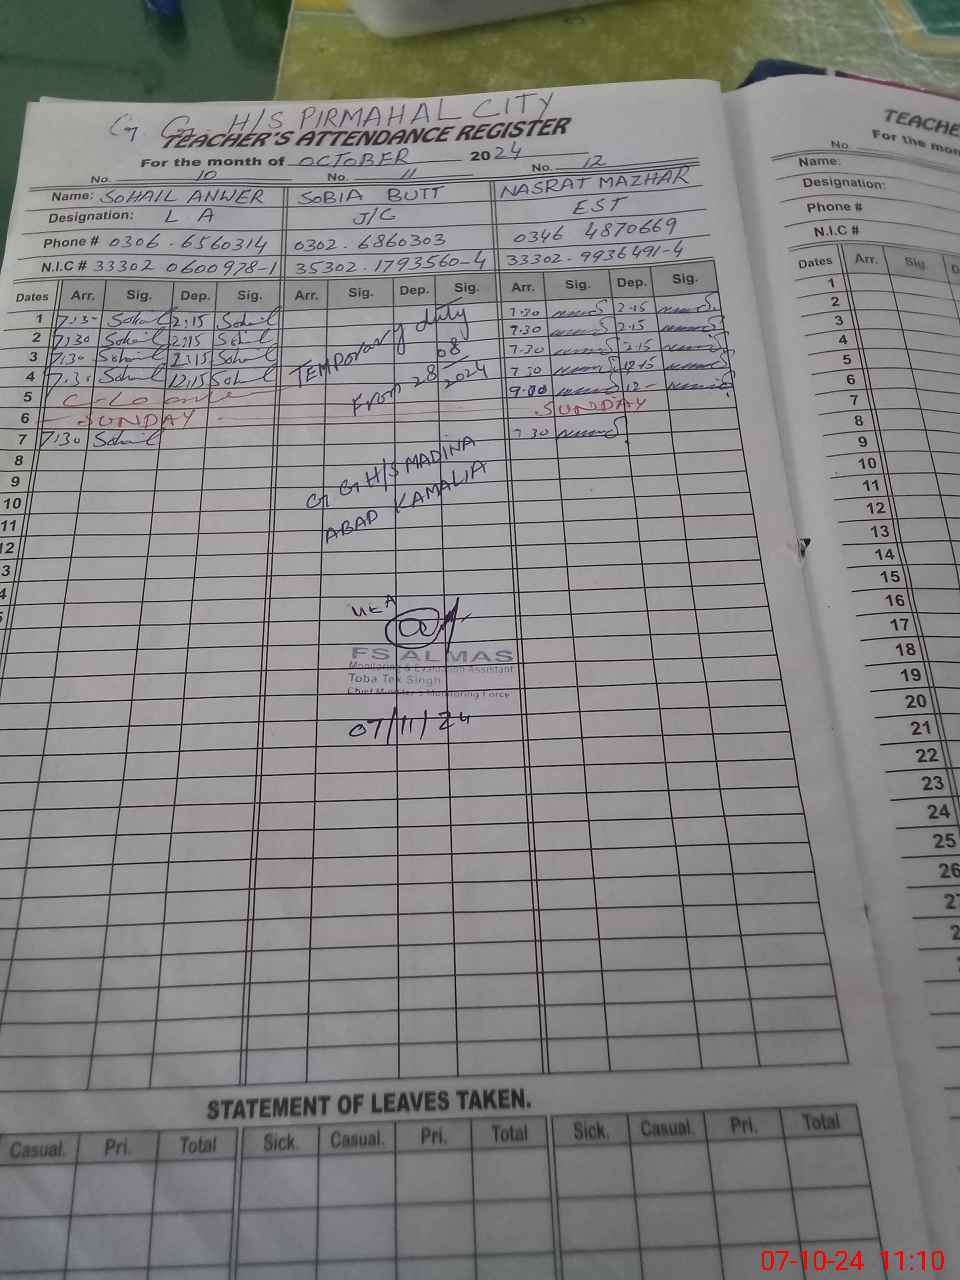 G. G. H/S PIRMAHAL CITY
TEACHER'S ATTENDANCE REGISTER
For the month of OCTOBER 2024
No. 10 No. 11 No. 12
Name: SOHAIL ANWER SOBIA BUTT NASRAT MAZHAR
Designation: L A J/C EST
Phone # 0306-6560314 0302-6860303 0346 4870669
N.I.C # 33302 0600978-1 35302-1793560-4 33302-9936491-4
Dates Arr. Sig. Dep. Sig. Arr. Sig. Dep. Sig. Arr. Sig. Dep. Sig.
1 7:30 Sohail 2:15 Sohail 7.30 2.15
2 7:30 Sohail 2:15 Sohail 7.30 2.15
3 7:30 Sohail 2:15 Sohail 7.30 2.15
4 7:30 Sohail 12:15 Sohail 7.30 12.15
5 9.00 12-
6 SUNDAY SUNDAY
7 7:30 Sohail 7.30
8
9
10
11
12
3
4
5
TEMPORARY duty
From 28/08/2024
G G H/S MADINA
ABAD KAMALIA
MEA
FS ALMAS
Monitoring & Evaluation Assistant
Toba Tek Singh
Chief Minister's Monitoring Force
07/11/24
STATEMENT OF LEAVES TAKEN.
Casual. Pri. Total Sick. Casual. Pri. Total Sick. Casual. Pri. Total
TEACHE
For the mon
No.
Name:
Designation:
Phone #
N.I.C #
Dates Arr. Sig. D
1
2
3
4
5
6
7
8
9
10
11
12
13
14
15
16
17
18
19
20
21
22
23
24
25
26
27
2
07-10-24 11:10